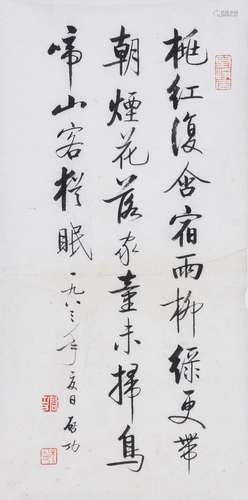 桃紅復含宿雨柳綠更帶
朝煙花落家童未掃鳥
啼山客猶眠 一九八三年夏日 啟功